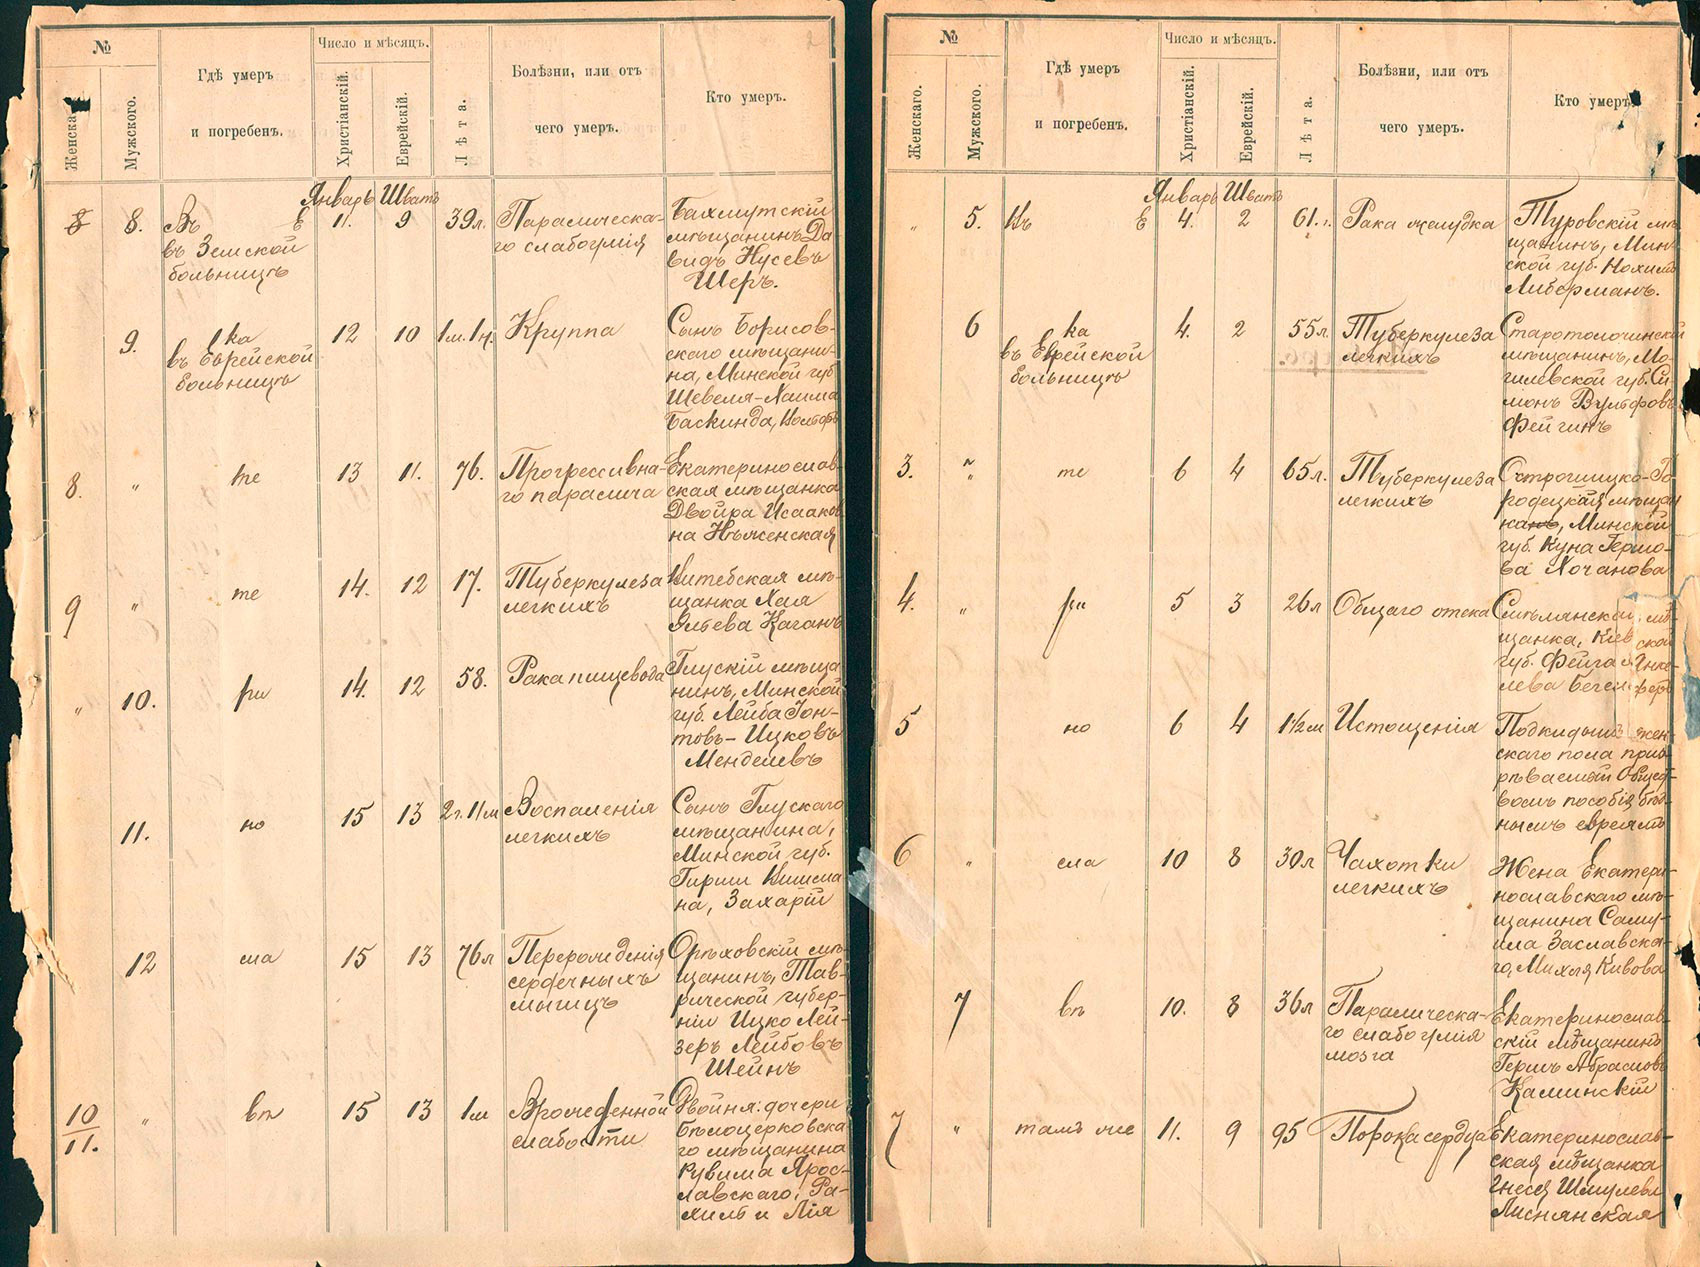 №
Женска
Мужского.
Гдѣ умеръ
и погребенъ.
Число и мѣсяцъ.
Христіанскій.
Еврейскій.
Лѣта.
Болѣзни, или отъ
чего умеръ.
Кто умеръ.
Январь Шватъ
8 8. Въ Е 11. 9 39л. Паралическа-
го слабоумія
въ Земской
больницѣ
Бахмутскій
мѣщанинъ Да-
видъ Нусевъ
Шеръ.
9. ка 12 10 1м. 1н. Круппа
въ Еврейской
больницѣ
Сынъ Борисов-
скаго мѣщани-
на, Минской губ
Шевеля-Хаима
Баскинда,
8. " те 13 11. 76. Прогрессивна-
го паралича
Екатеринослав-
ская мѣщанка
Двойра Исааков
на Нѣженская
9 " те 14. 12 17. Туберкулеза
легкихъ
Витебская мѣ-
щанка Хая
Каганъ
" 10. ри 14. 12 58. Рака пищевода
Глускій мѣща-
нинъ, Минской
губ. Лейба Іон-
товъ-Ицковъ
Менделевъ
11. но 15 13 2г. 11м Воспаленія
легкихъ
Сынъ Глускаго
мѣщанина,
Минской губ.
Гирши Кишема
на, Захарій
12 сла 15 13 76л Перерожденія
сердечныхъ
мышцъ
Орѣховскій мѣ-
щанинъ, Тав-
рической губер-
ніи Ицко Лей-
зеръ Лейбовъ
Шейнъ
10
11. " вл 15 13 1м Врожденной
слабости
Двойня: дочери
Бѣлоцерковска
го мѣщанина
Рувима Ярос-
лавскаго, Ра-
хиль и Лія
№
Женскаго.
Мужского.
Гдѣ умеръ
и погребенъ.
Число и мѣсяцъ.
Христіанскій.
Еврейскій.
Лѣта.
Болѣзни, или отъ
чего умеръ.
Кто умеръ.
Январь Шватъ
" 5. Е 4. 2 61. г. Рака желудка
Туровскій мѣ
щанинъ, Мин
ской губ. Нохимъ
Либерманъ.
6 ка 4. 2 55л. Туберкулеза
легкихъ
въ Еврейской
больницѣ
Старотолочинскій
мѣщанинъ, Мо-
гилевской губ. Си
монъ Вульфовъ
Фейгинъ
3. " те 6 4 65л. Туберкулеза
легкихъ
Острошицко-Го-
родецкая мѣщан
ка, Минской
губ. Куна Гершо-
ва Хочанова
4. " ри 5 3 26л Общаго отека
щанка, Кіевской
губ. Фейга Янке-
лева
5 но 6 4 1½м Истощенія
Подкидышъ жен-
скаго пола приз-
рѣваемый Общест-
вомъ пособія бѣд-
нымъ евреямъ
6 " сла 10 8 30л Чахотки
легкихъ
Жена Екатери-
нославскаго мѣ-
щанина Саму-
ила Заславска-
го, Михля Кивова
7 вл 10. 8 36л Паралическа-
го слабоумія
мозга
Екатеринослав-
скій мѣщанинъ
Гершъ Абрамовъ
Каминскій
7 " тамъ же 11. 9 95 Порока сердца
Екатеринослав-
ская мѣщанка
Гнеся Шмулева
Лиснянская